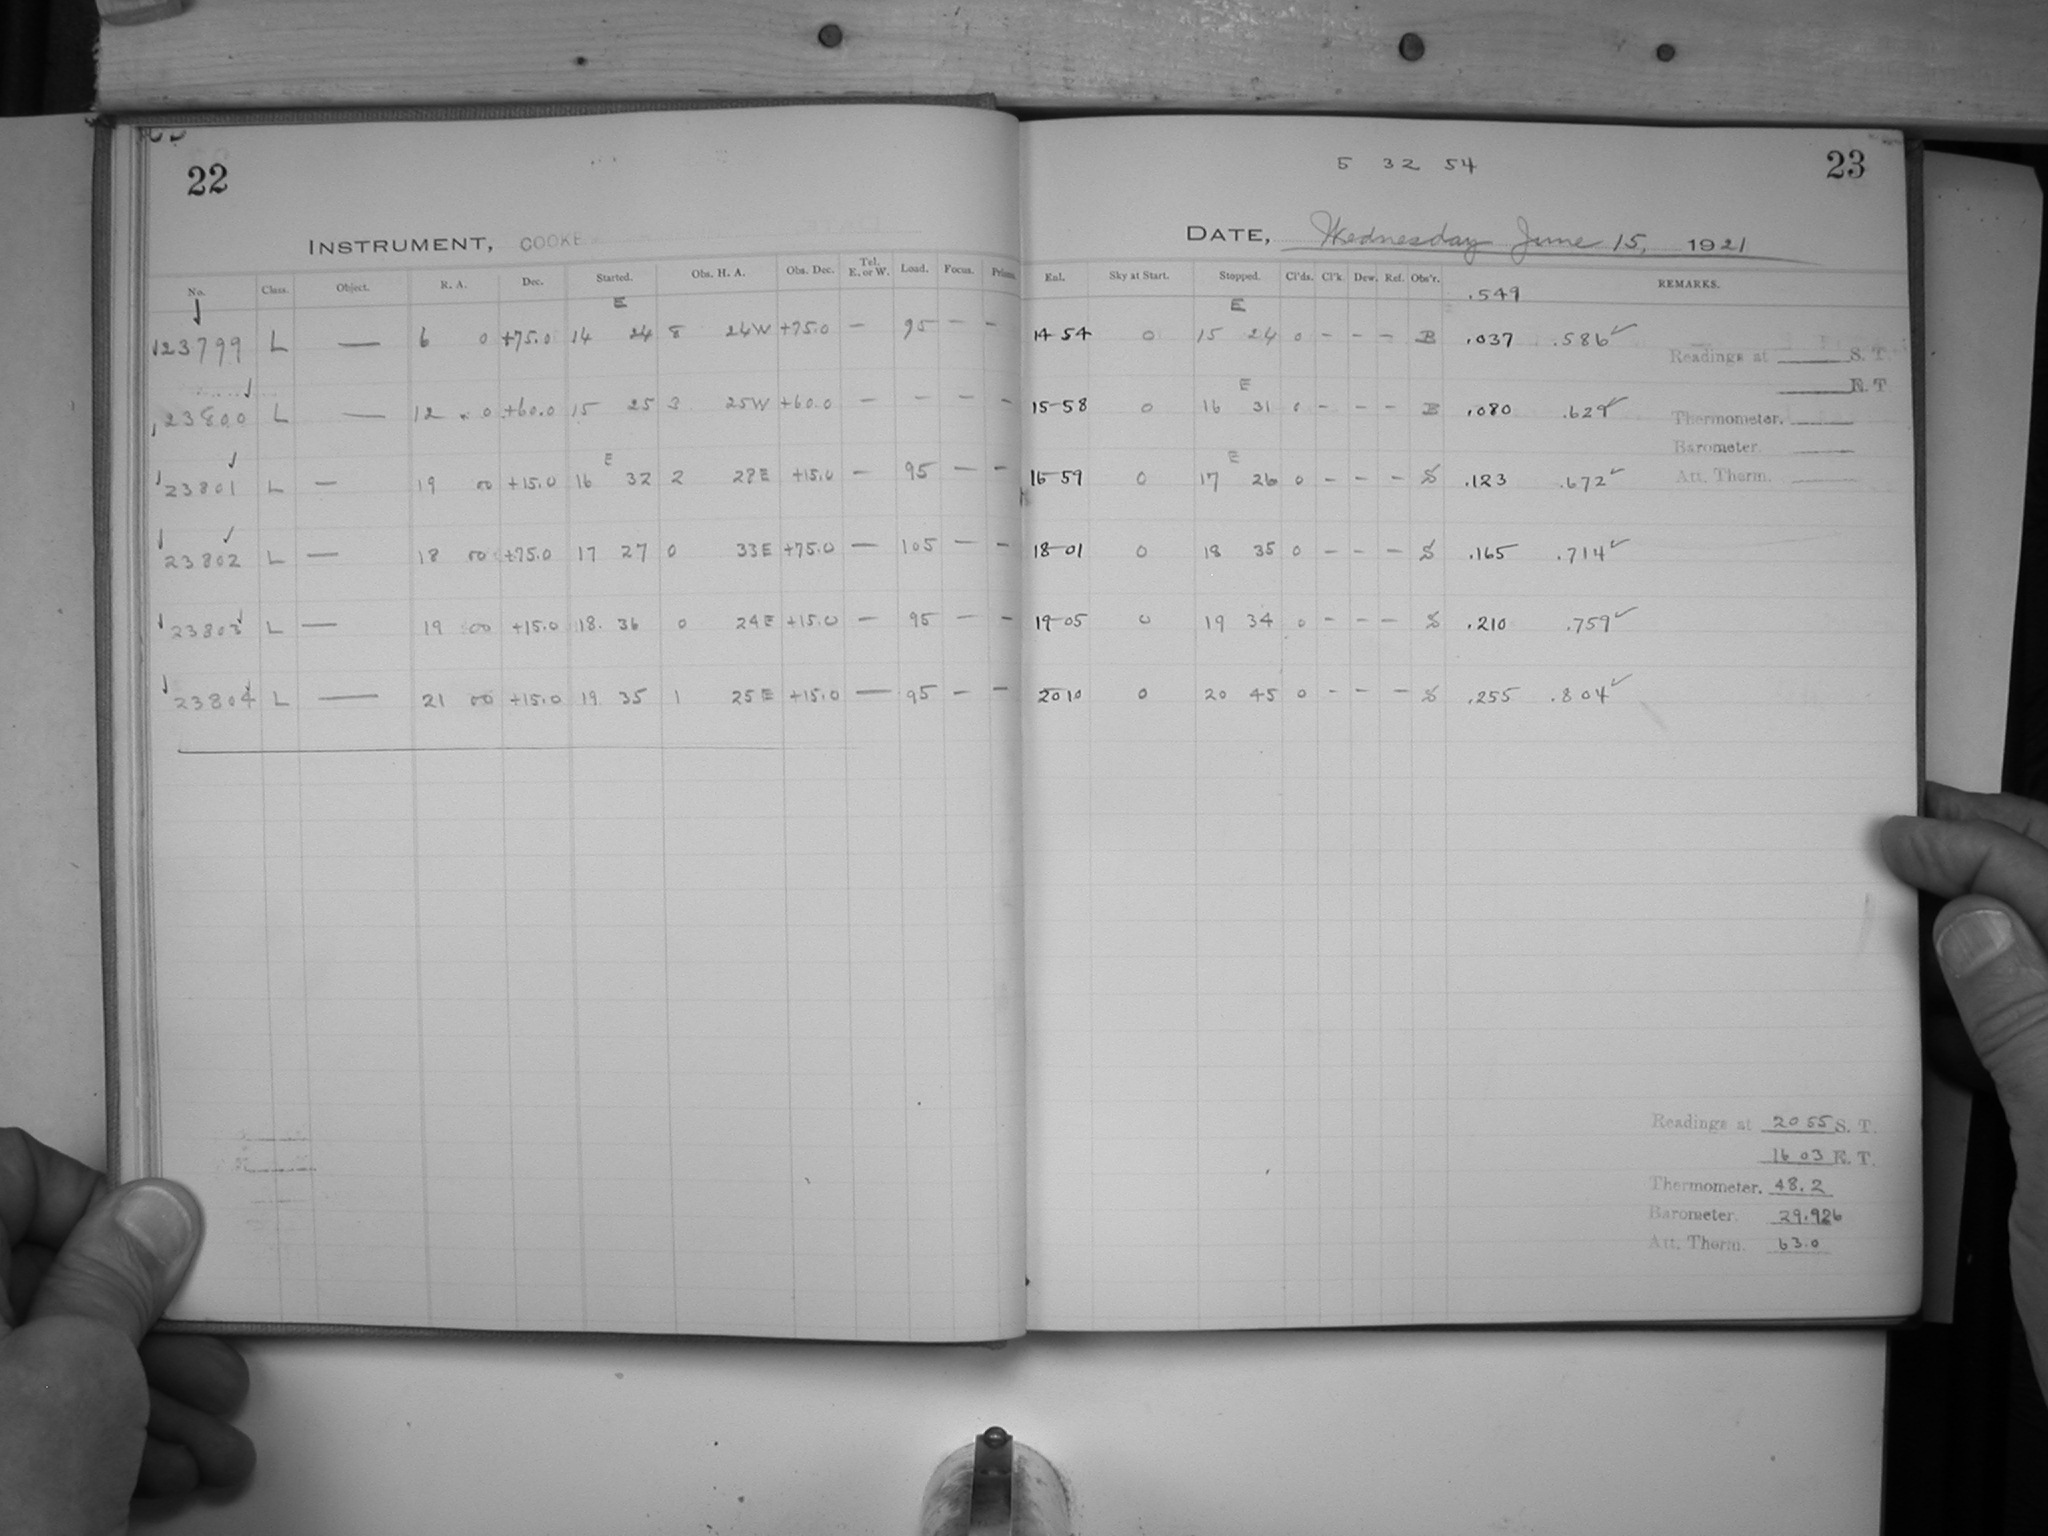 22
INSTRUMENT, COOKE
No. Class. Object. R. A. Dec. Started. Obs. H. A. Obs. Dec. Tel. E. or W. Load. Focus. Prism.
E
23799 L — 6 0 +75.0 14 24 8 24W +75.0 — 95 — —
23800 L — 12 0 +60.0 15 25 3 25W +60.0 — — — —
E
23801 L — 19 00 +15.0 16 32 2 28E +15.0 — 95 — —
23802 L — 18 00 +75.0 17 27 0 33E +75.0 — 105 — —
23803 L — 19 00 +15.0 18. 36 0 24E +15.0 — 95 — —
23804 L — 21 00 +15.0 19 35 1 25E +15.0 — 95 — —
5 32 54
23
DATE, Wednesday June 15, 1921
Exl. Sky at Start. Stopped. Cl'ds. Cl'k. Dew. Ref. Obs'r. REMARKS.
.549
E
14 54 0 15 24 0 - - - B .037 .586 ✓
Readings at S. T
E. T
E
15-58 0 16 31 0 - - - B .080 .629 ✓
Thermometer.
Barometer.
E
16-59 0 17 26 0 - - - S .123 .672 ✓
Att. Therm.
18-01 0 18 35 0 - - - S .165 .714 ✓
19-05 0 19 34 0 - - - S .210 .759 ✓
20 10 0 20 45 0 - - - S .255 .804 ✓
Readings at 20 55 S. T.
16 03 E. T.
Thermometer. 48.2
Barometer. 29.926
Att. Therm. 63.0